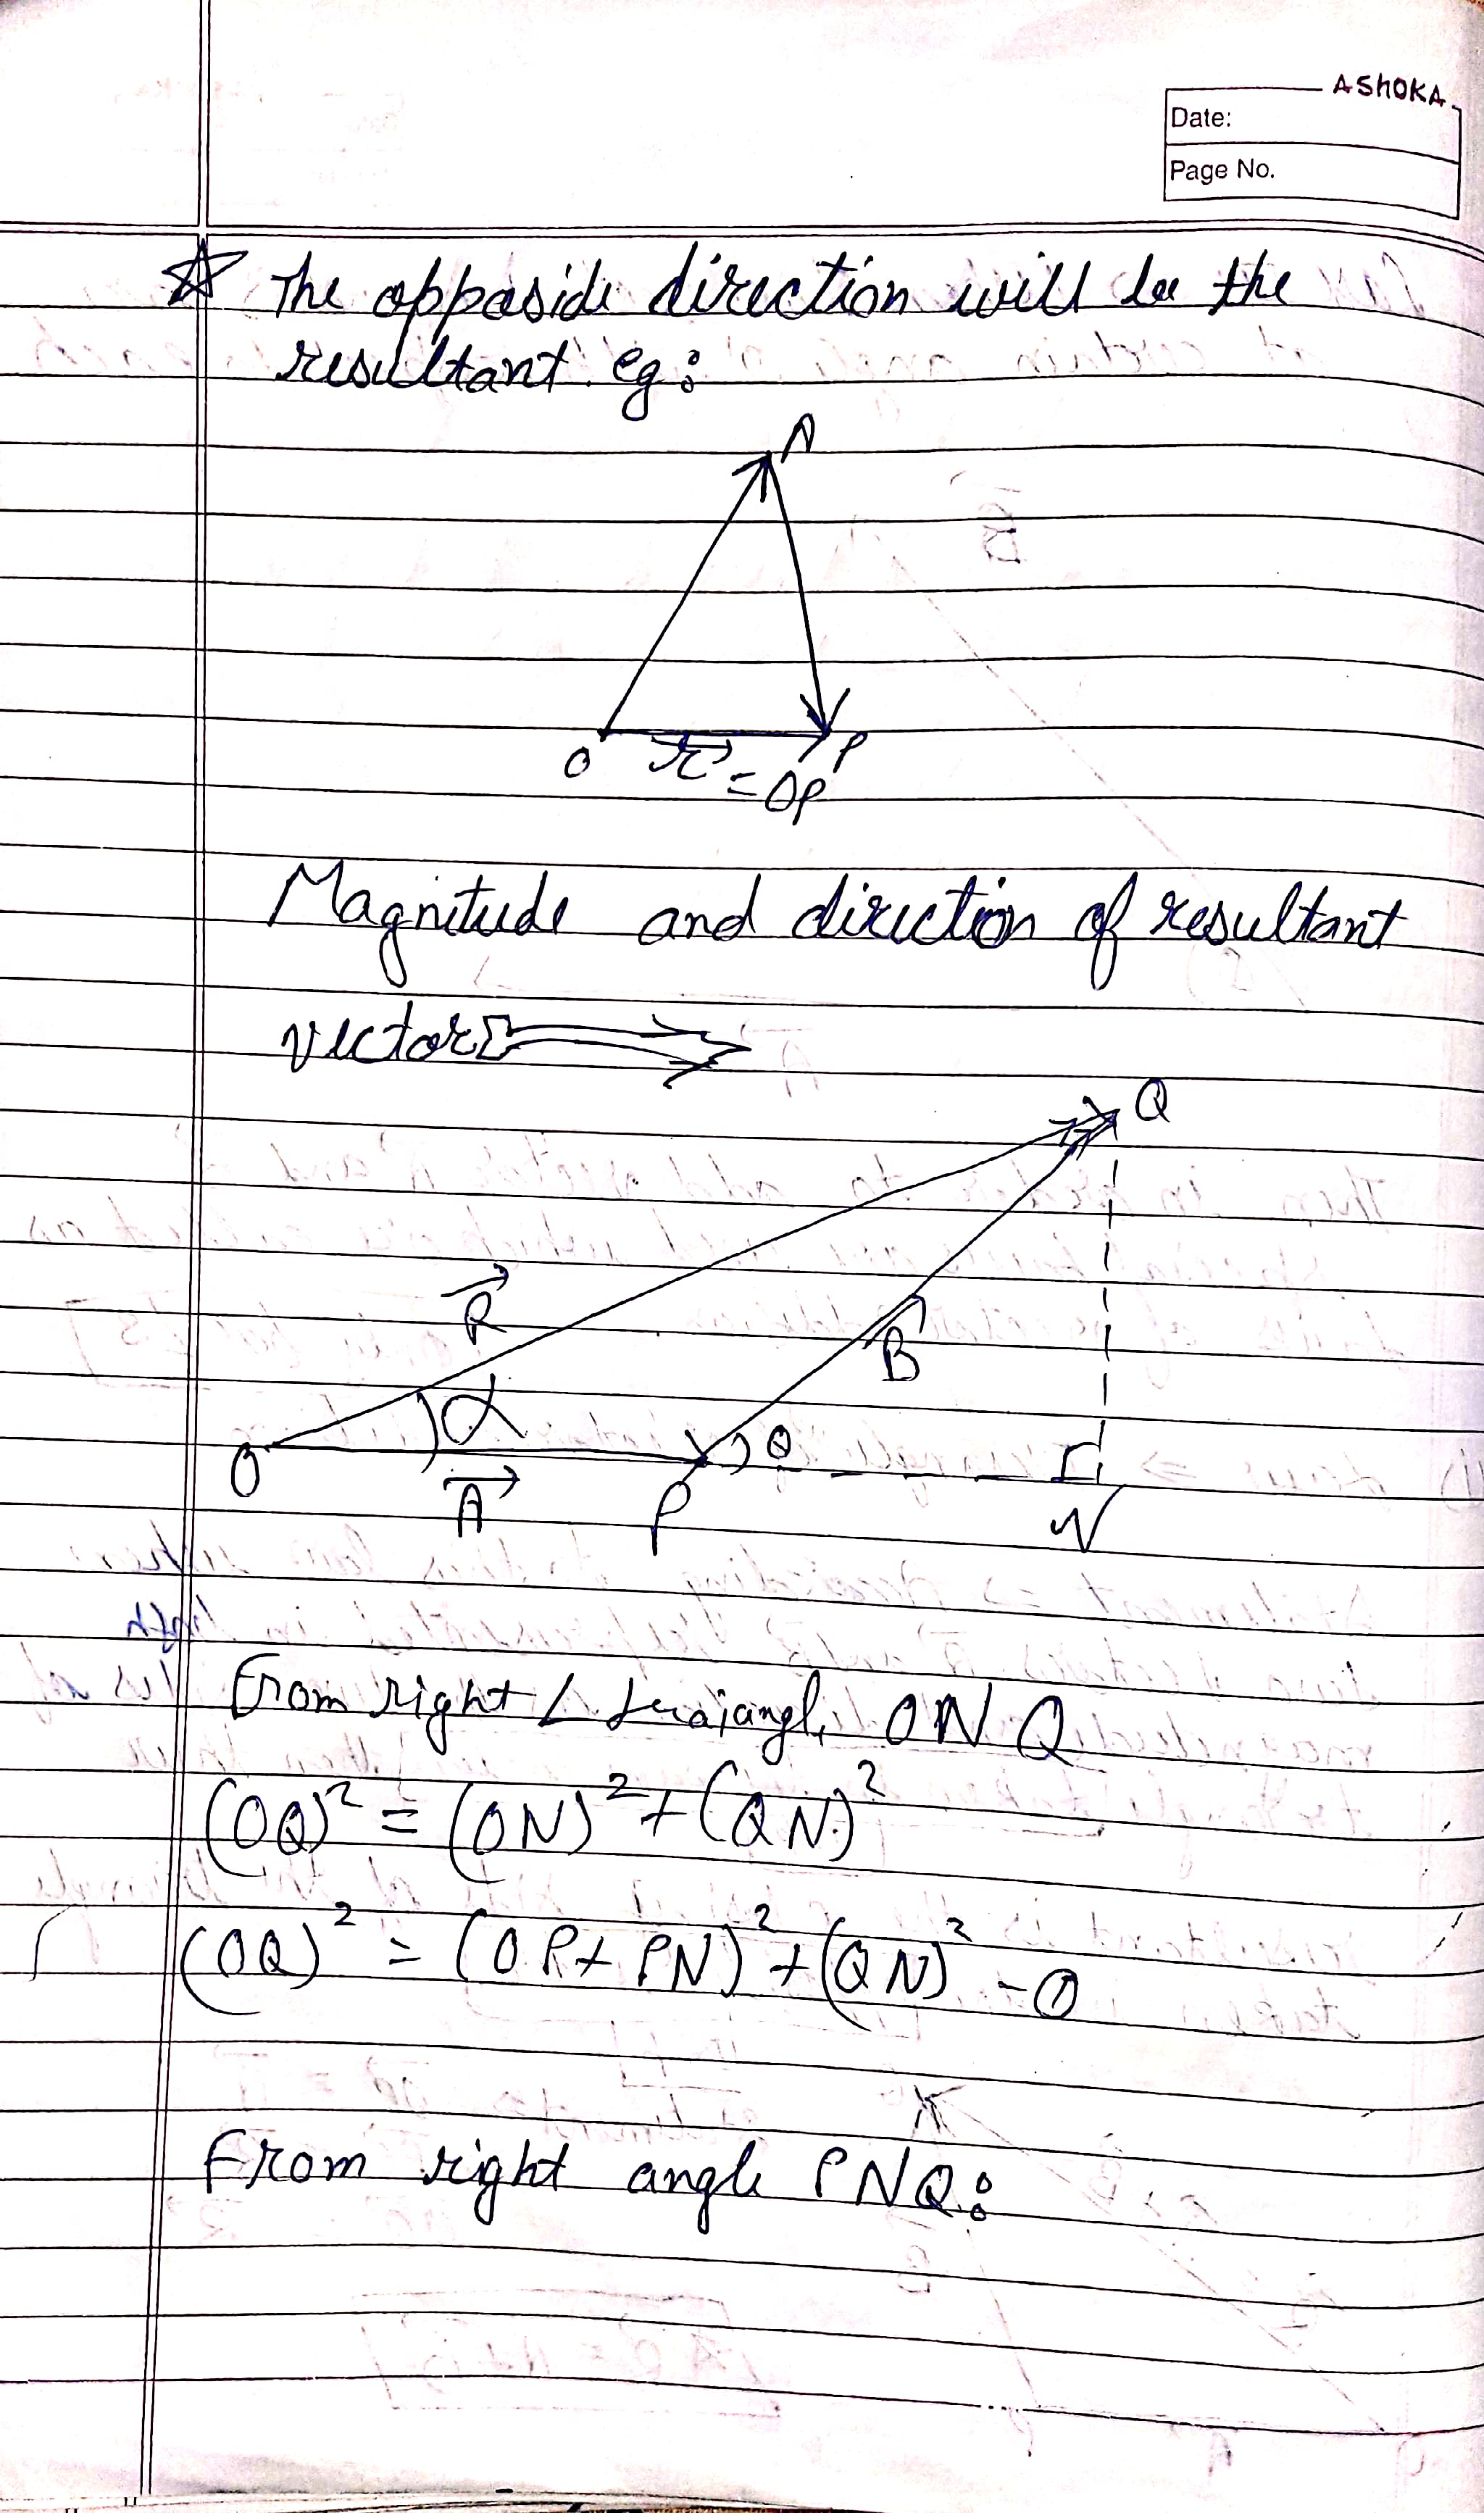 ASHOKA
Date:
Page No.
☆ The opposide direction will be the
resultant. eg:
A
O
P
r⃗ = OP
Magnitude and direction of resultant
vector
Q
R⃗
B
α
θ
O
A⃗
P
N
From right ∠ ONQ
(OQ)² = (ON)² + (QN)²
(OQ)² = (OP + PN)² + (QN)² - ①
From right angle PNQ: